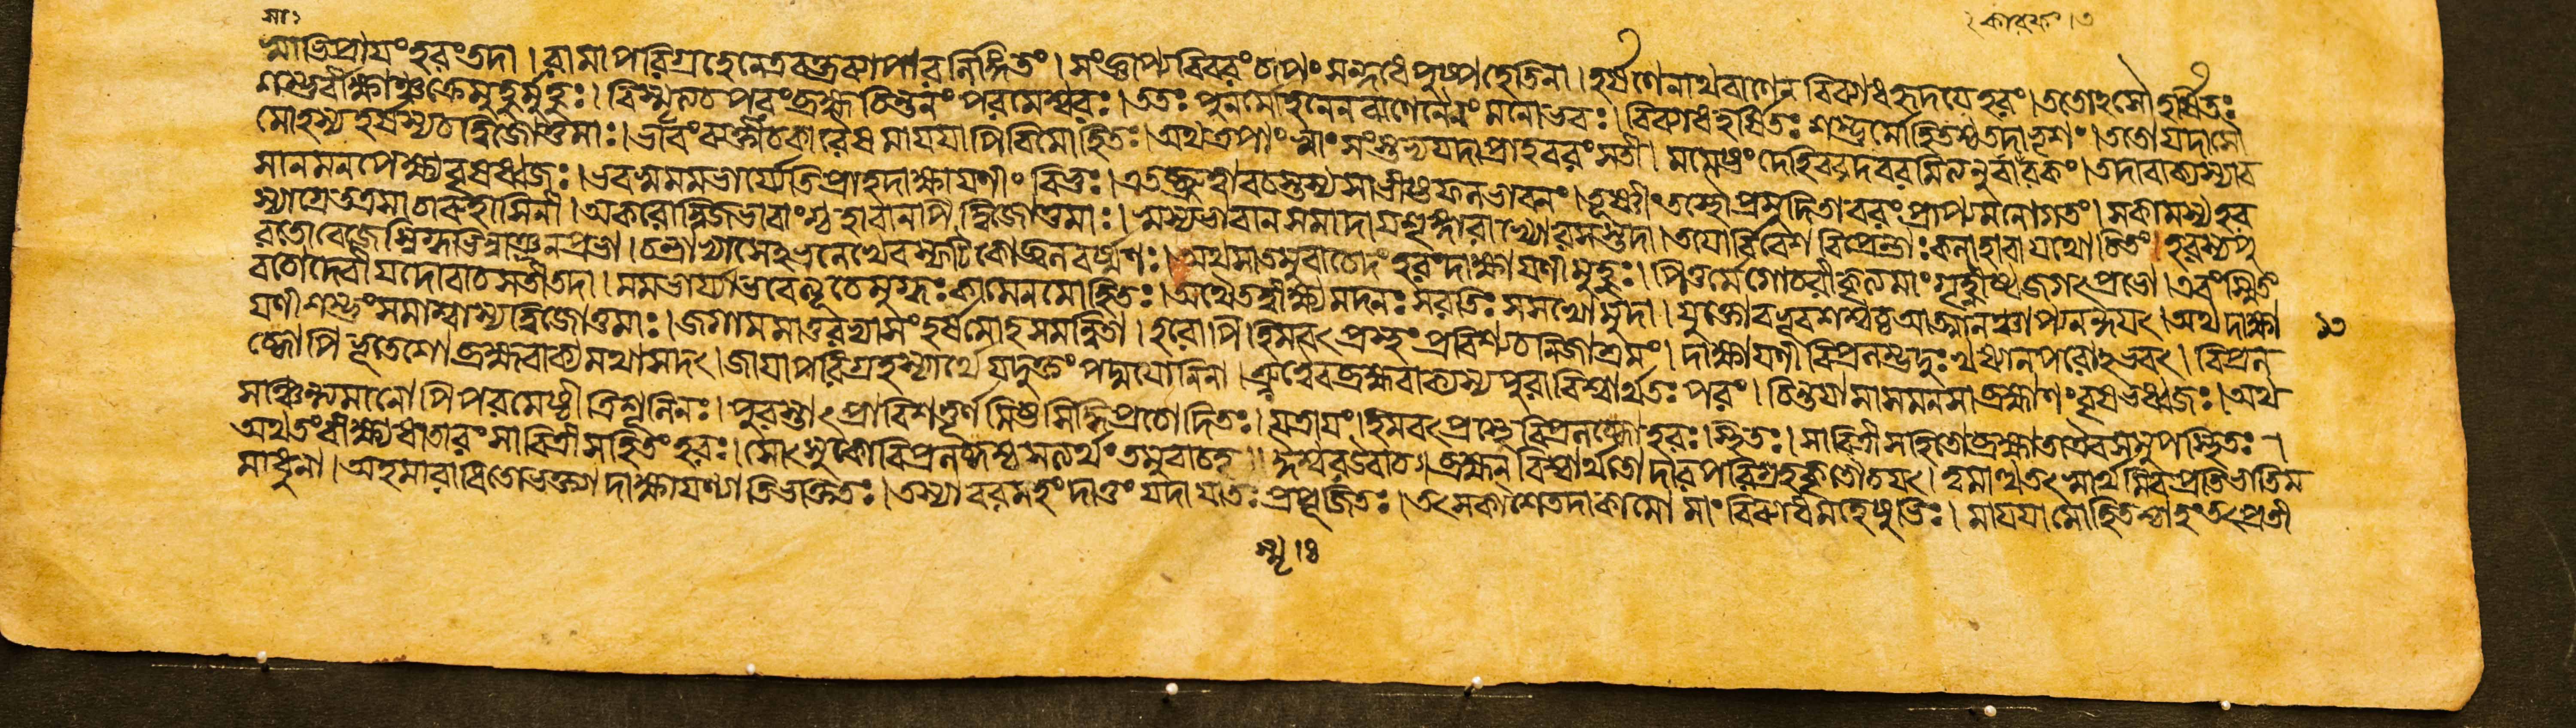 সাভিপ্রায়ং হরং তদা । রামাপরিগ্রহে নেত্রবক্ত্রব্যাপারনিন্দিতং । সংপ্রাপ্য বিবরং চাপং সন্দধে পুষ্পহেতিনা । হর্ষণেনাথ বাণেন বিব্যাধ হৃদয়ে হরং । ততোহসৌ হর্ষিতঃ
শম্ভুর্বীক্ষাঞ্চক্রে মুহুর্মুহুঃ । বিস্মৃত্য চ পরং ব্রহ্ম চিন্তনং পরমেশ্বরঃ । ততঃ পুনর্মোহনেন বাণেনৈনং মনোভবঃ । বিব্যাধ হর্ষিতঃ শম্ভুর্মোহিতশ্চ তদা ভৃশং । ততো যদাসৌ
মোহস্য হর্ষস্য চ দ্বিজোত্তমাঃ । ভাবং ব্যক্তীচকারেষ মায়য়াপি বিমোহিতঃ । অথ ত্রপাং স্বাং সংস্তভ্য যদা প্রাহ বরং সতী । মমেষ্টং দেহি বরদ বরমিত্যনুবারকং । তদা বাক্যস্যাব
সানমনপেক্ষ্য বৃষধ্বজঃ । ভব স্ব মম ভার্য্যেতি প্রাহ দাক্ষায়ণীং বিভুঃ । এতচ্ছ্রুত্বা বচস্তস্য সাভীষ্টফলভাবনং । তূষ্ণীং তস্থৌ প্রমুদিতা বরং প্রাপ্য মনোগতং । সকামস্য হর
স্যাগ্রে তত্র সা চারুহাসিনী । অকরোন্নিজভাবাংশ্চ হাবানপি দ্বিজোত্তমাঃ । স্বস্য ভাবান সমাদায় শৃঙ্গারাখ্যো রসস্তদা । তয়োর্বিবেশ বিপ্রেন্দ্রাঃ কলাহাবা যথোচিতং । হরস্য পু
রতো রেজে স্নিগ্ধভিন্নাঞ্জনপ্রভা । চন্দ্রাভ্যাসেঽঙ্কলেখেব স্ফটিকোজ্জ্বলবর্ষ্মণঃ । অথ সা তমুবাচেদং হরং দাক্ষায়ণী মুহুঃ । পিতুর্মে গোচরীকৃত্য মাং গৃহ্নীষ্ব জগৎপ্রভো । এবং স্মিতং
বচো দেবী যদোবাচ সতী তদা । মম ভার্য্যা ভবেত্যূচে মুগ্ধঃ কামেন মোহিতঃ । অথৈতদ্বীক্ষ্য মদনঃ সরতিঃ সসখো মুদা । যুক্তো বভূব শম্বচ্চ আত্মানঞ্চাপ্যনন্দয়ৎ । অথ দাক্ষা
১৩
য়ণী শম্ভুং সমাশ্বাস্য দ্বিজোত্তমাঃ । জগাম মাতুরভ্যাসং হর্ষমোহসমন্বিতা । হরোপি হিমবৎপ্রস্থং প্রবিশ্য চ নিজাশ্রমং । দাক্ষায়ণীবিপ্রলম্ভদুঃখধ্যানপরোঽভবৎ । বিপ্রল
ব্ধোপি ভূতেশো ব্রহ্মবাক্যমথাস্মরৎ । জায়াপরিগ্রহস্যার্থে যদুক্তং পদ্মযোনিনা । শ্রুত্বৈব ব্রহ্মবাক্যস্য পুরা বিশ্বার্থতঃ পরং । চিন্তয়ামাস মনসা ব্রহ্মাণং বৃষভধ্বজঃ । অথ
সঞ্চিন্ত্যমানোপি পরমেষ্ঠী ত্রিশূলিনঃ । পুরস্তাৎ প্রাবিশত্তূর্ণমিষ্টসিদ্ধিপ্রচোদিতঃ । যত্রায়ং হিমবৎপ্রস্থে বিপ্রলব্ধো হরঃ স্থিতঃ । সাবিত্রীসহিতো ব্রহ্মা তত্রৈব সমুপস্থিতঃ ।
অথ তং বীক্ষ্য ধাতারং সাবিত্রীসহিতং হরঃ । সোৎসুকো বিপ্রলব্ধশ্চ সত্যর্থং তমুবাচ হ ॥ ঈশ্বর উবাচ । ব্রহ্মন্ বিশ্বার্থতো দারপরিগ্রহকৃতৌ চ যৎ । ত্বমাত্থ তৎ সার্থমিব প্রতিভাতি ম
মাধুনা । অহমারাধিতো ভক্ত্যা দাক্ষায়ণ্যাতিভক্তিতঃ । তস্যা বরমহং দাতুং যদা যাতঃ প্রপূজিতঃ । তৎসকাশে তদা কামো মাং বিব্যাধ মহেষুভিঃ । মায়য়া মোহিতশ্চাহং তৎপ্রতী